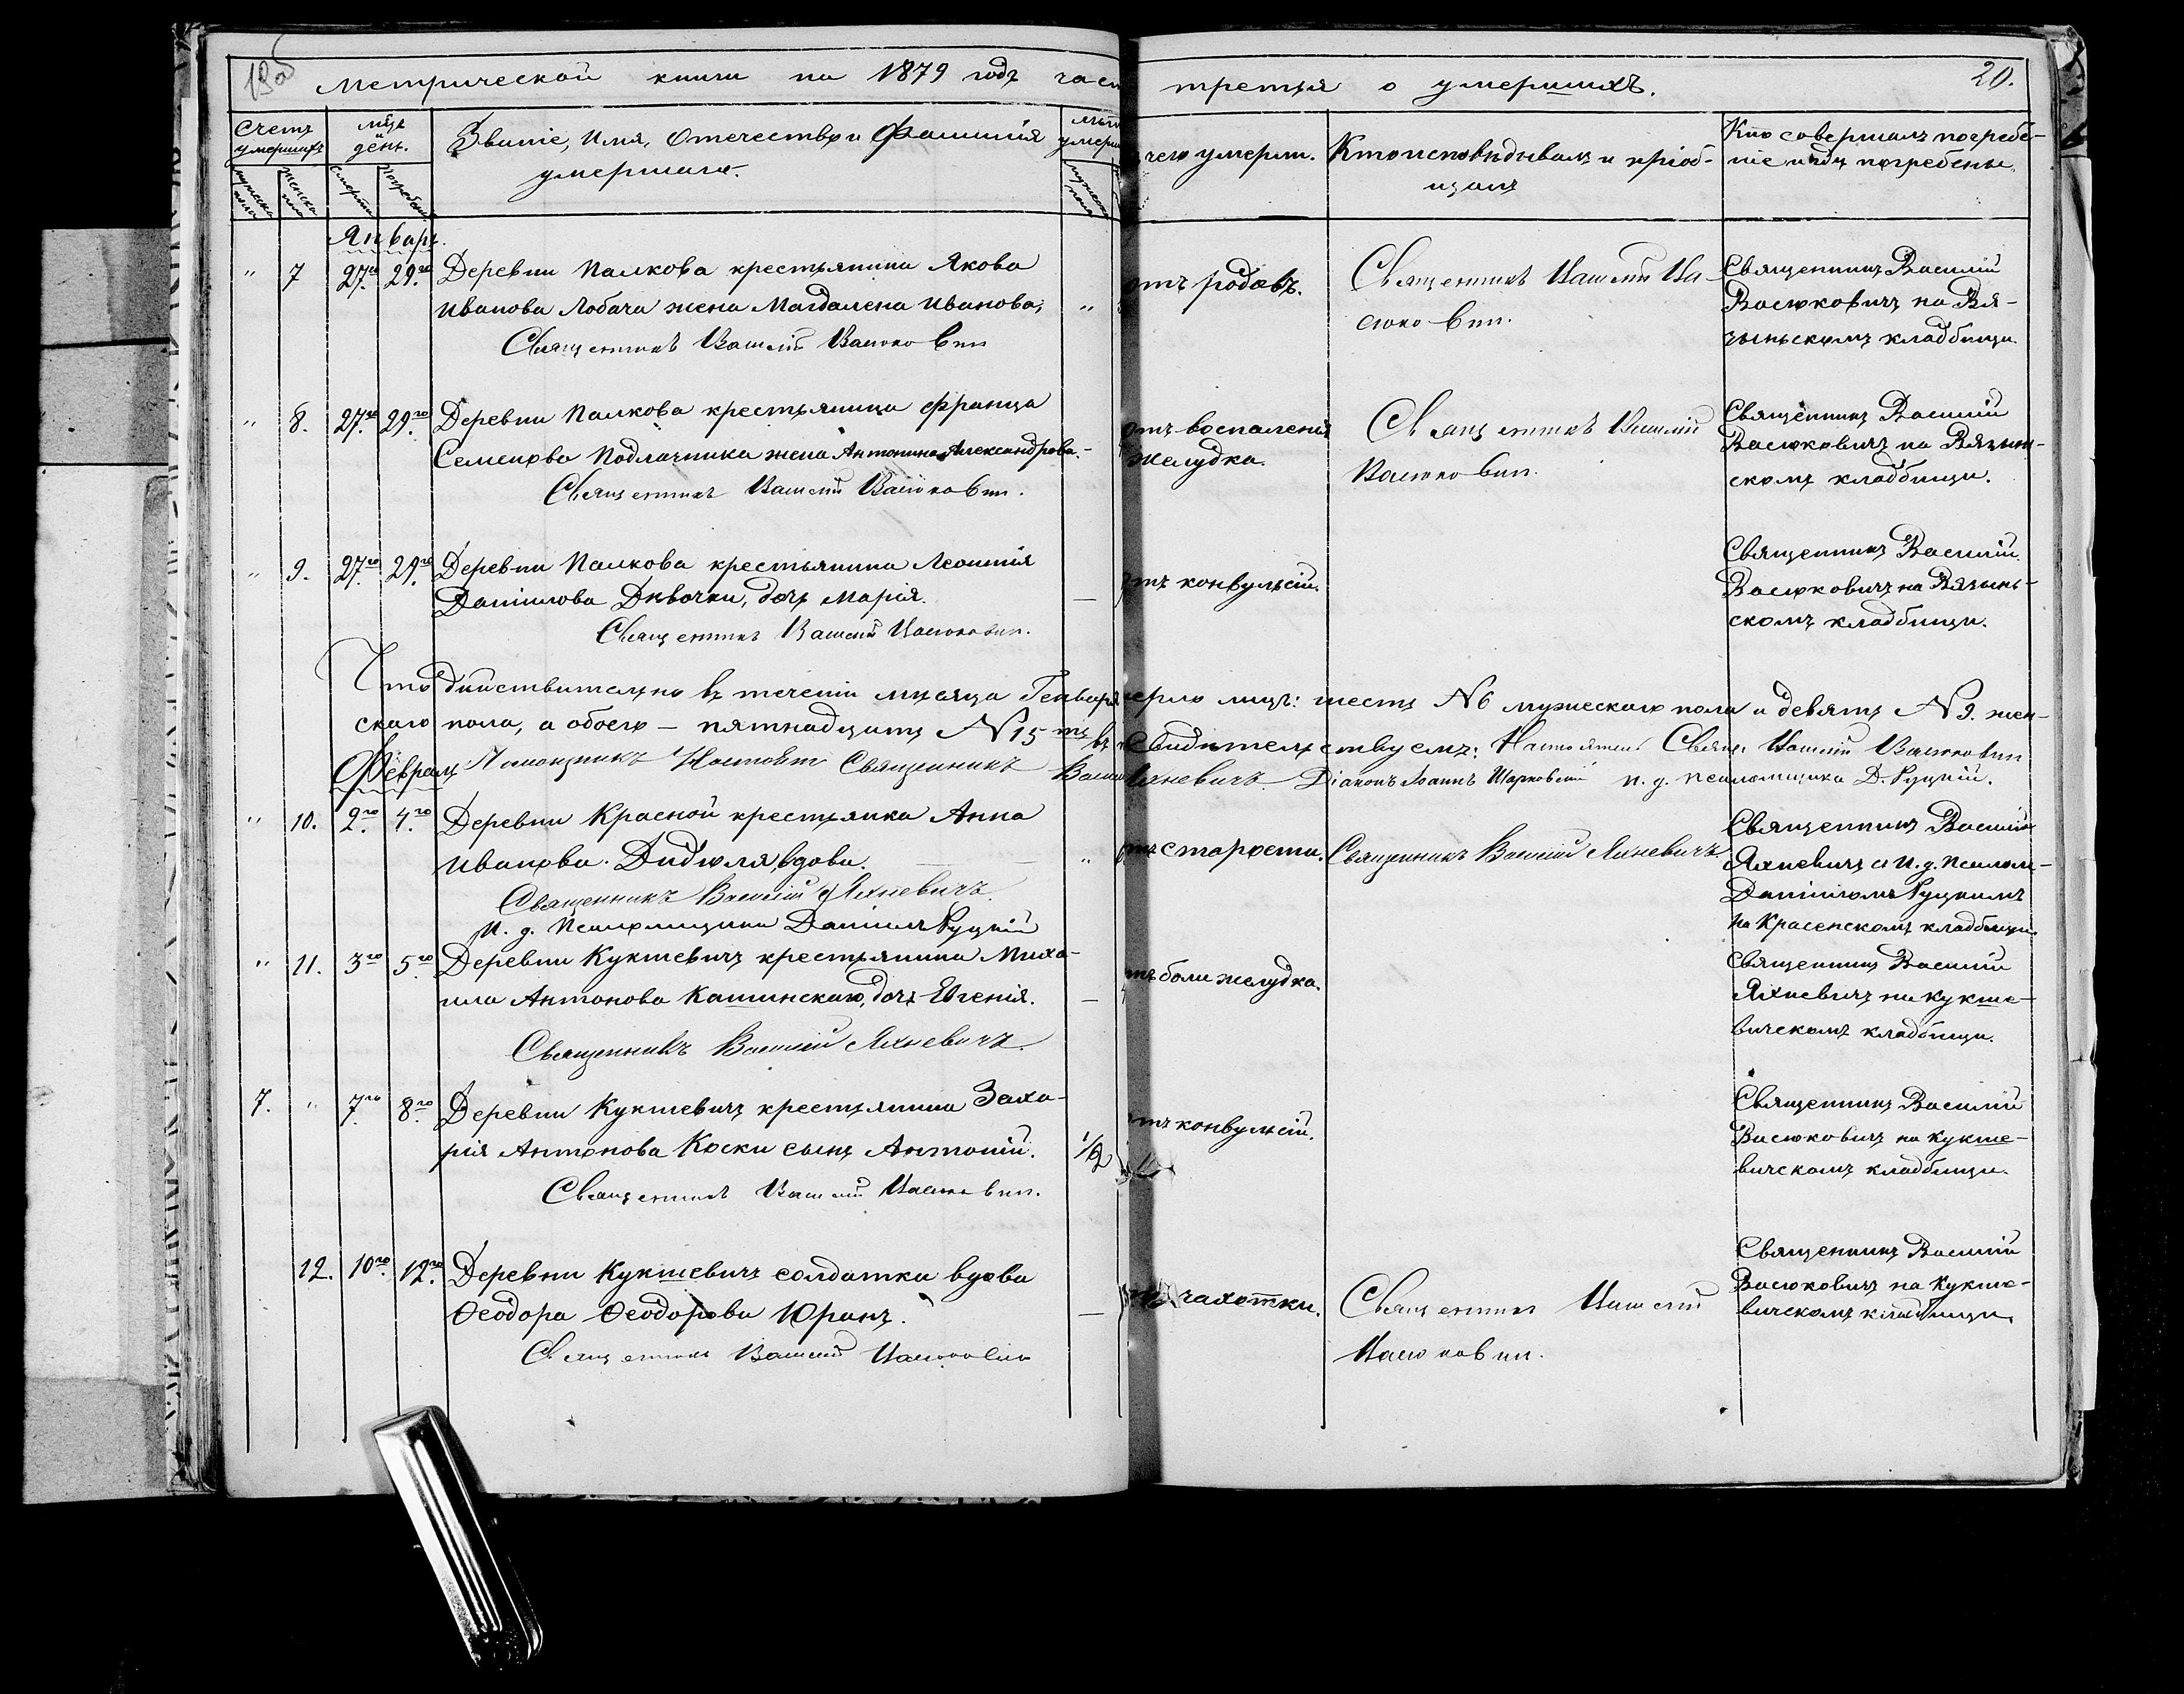 19об
Метрической книги на 1879 годъ част третья о умершихъ. 20.
Счетъ умершихъ
мужска пола
женска пола
мѣць и день.
смерти
погребенія
Званіе, Имя, Отечество и Фамилія
умершаго.
мужеска пола
чего умерли.
Кто исповѣдывалъ и пріоб-
щалъ
Кто совершалъ погребе-
ніе и гдѣ погребены.
Январь.
" 7 27го 29го Деревни Палкова крестьянина Якова
Иванова Лобача жена Магдалена Иванова,
Священникъ Василій Васюковичъ
"
отъ родовъ.
Священникъ Василій Ва-
сюковичъ.
Священникъ Василій
Васюковичъ на Вя-
зыньскомъ кладбищи.
" 8. 27го 29го Деревни Палкова крестьянина Франца
Семенова Подлачника жена Антонина Александрова.
Священникъ Василій Васюковичъ.
отъ воспаленія
желудка.
Священникъ Василій
Васюковичъ.
Священникъ Василій
Васюковичъ на Вязын-
скомъ кладбищи.
" 9. 27го 29го Деревни Палкова крестьянина Леонтія
Даніилова Дѣвочки, дочь Марія.
Священникъ Василій Васюковичъ.
—
отъ конвульсій.
Священникъ Василій
Васюковичъ на Вязынь-
скомъ кладбищи.
Что дѣйствительно въ теченіи мѣсяца Генваря мерло лицъ: шесть N 6 мужескаго пола и девять N 9. жен-
скаго пола, а обоего — пятнадцать N 15 ть въ свидѣтельствуемъ: Настоятель Свящ. Василій Васюковичъ
Помощникъ Настоят. Священникъ Васил Яхневичъ. Діаконъ Іоаннъ Шарковскій и. д. псаломщика Д. Руцкій.
Февраль
" 10. 2го 4го Деревни Красной крестьянка Анна
Иванова Дидюля, вдова.
Священникъ Василій Яхневичъ.
И. д. Псаломщика Даніилъ Руцкій
"
отъ старости.
Священникъ Василій Яхневичъ.
Священникъ Василій
Яхневичъ съ И. д. Псалом-
Даніиломъ Руцкимъ
на Красенскомъ кладбищи.
" 11. 3го 5го Деревни Кукшевичъ крестьянина Миха-
ила Антонова Кашинскаго, дочь Евгенія.
Священникъ Василій Яхневичъ.
—
отъ боли желудка.
Священникъ Василій
Яхневичъ на Кукше-
вичскомъ кладбищи.
7. " 7го 8го Деревни Кукшевичъ крестьянина Заха-
рія Антонова Коски сынъ Антоній.
Священникъ Василій Васюковичъ.
1/2
отъ конвульсій.
Священникъ Василій
Васюковичъ на Кукше-
вичскомъ кладбищи.
12. 10го 12го Деревни Кукшевичъ солдатка вдова
Ѳеодора Ѳеодорова Юранъ.
Священникъ Василій Васюковичъ
—
отъ чахотки.
Священникъ Василій
Васюковичъ.
Священникъ Василій
Васюковичъ на Кукше-
вичскомъ кладбищи.